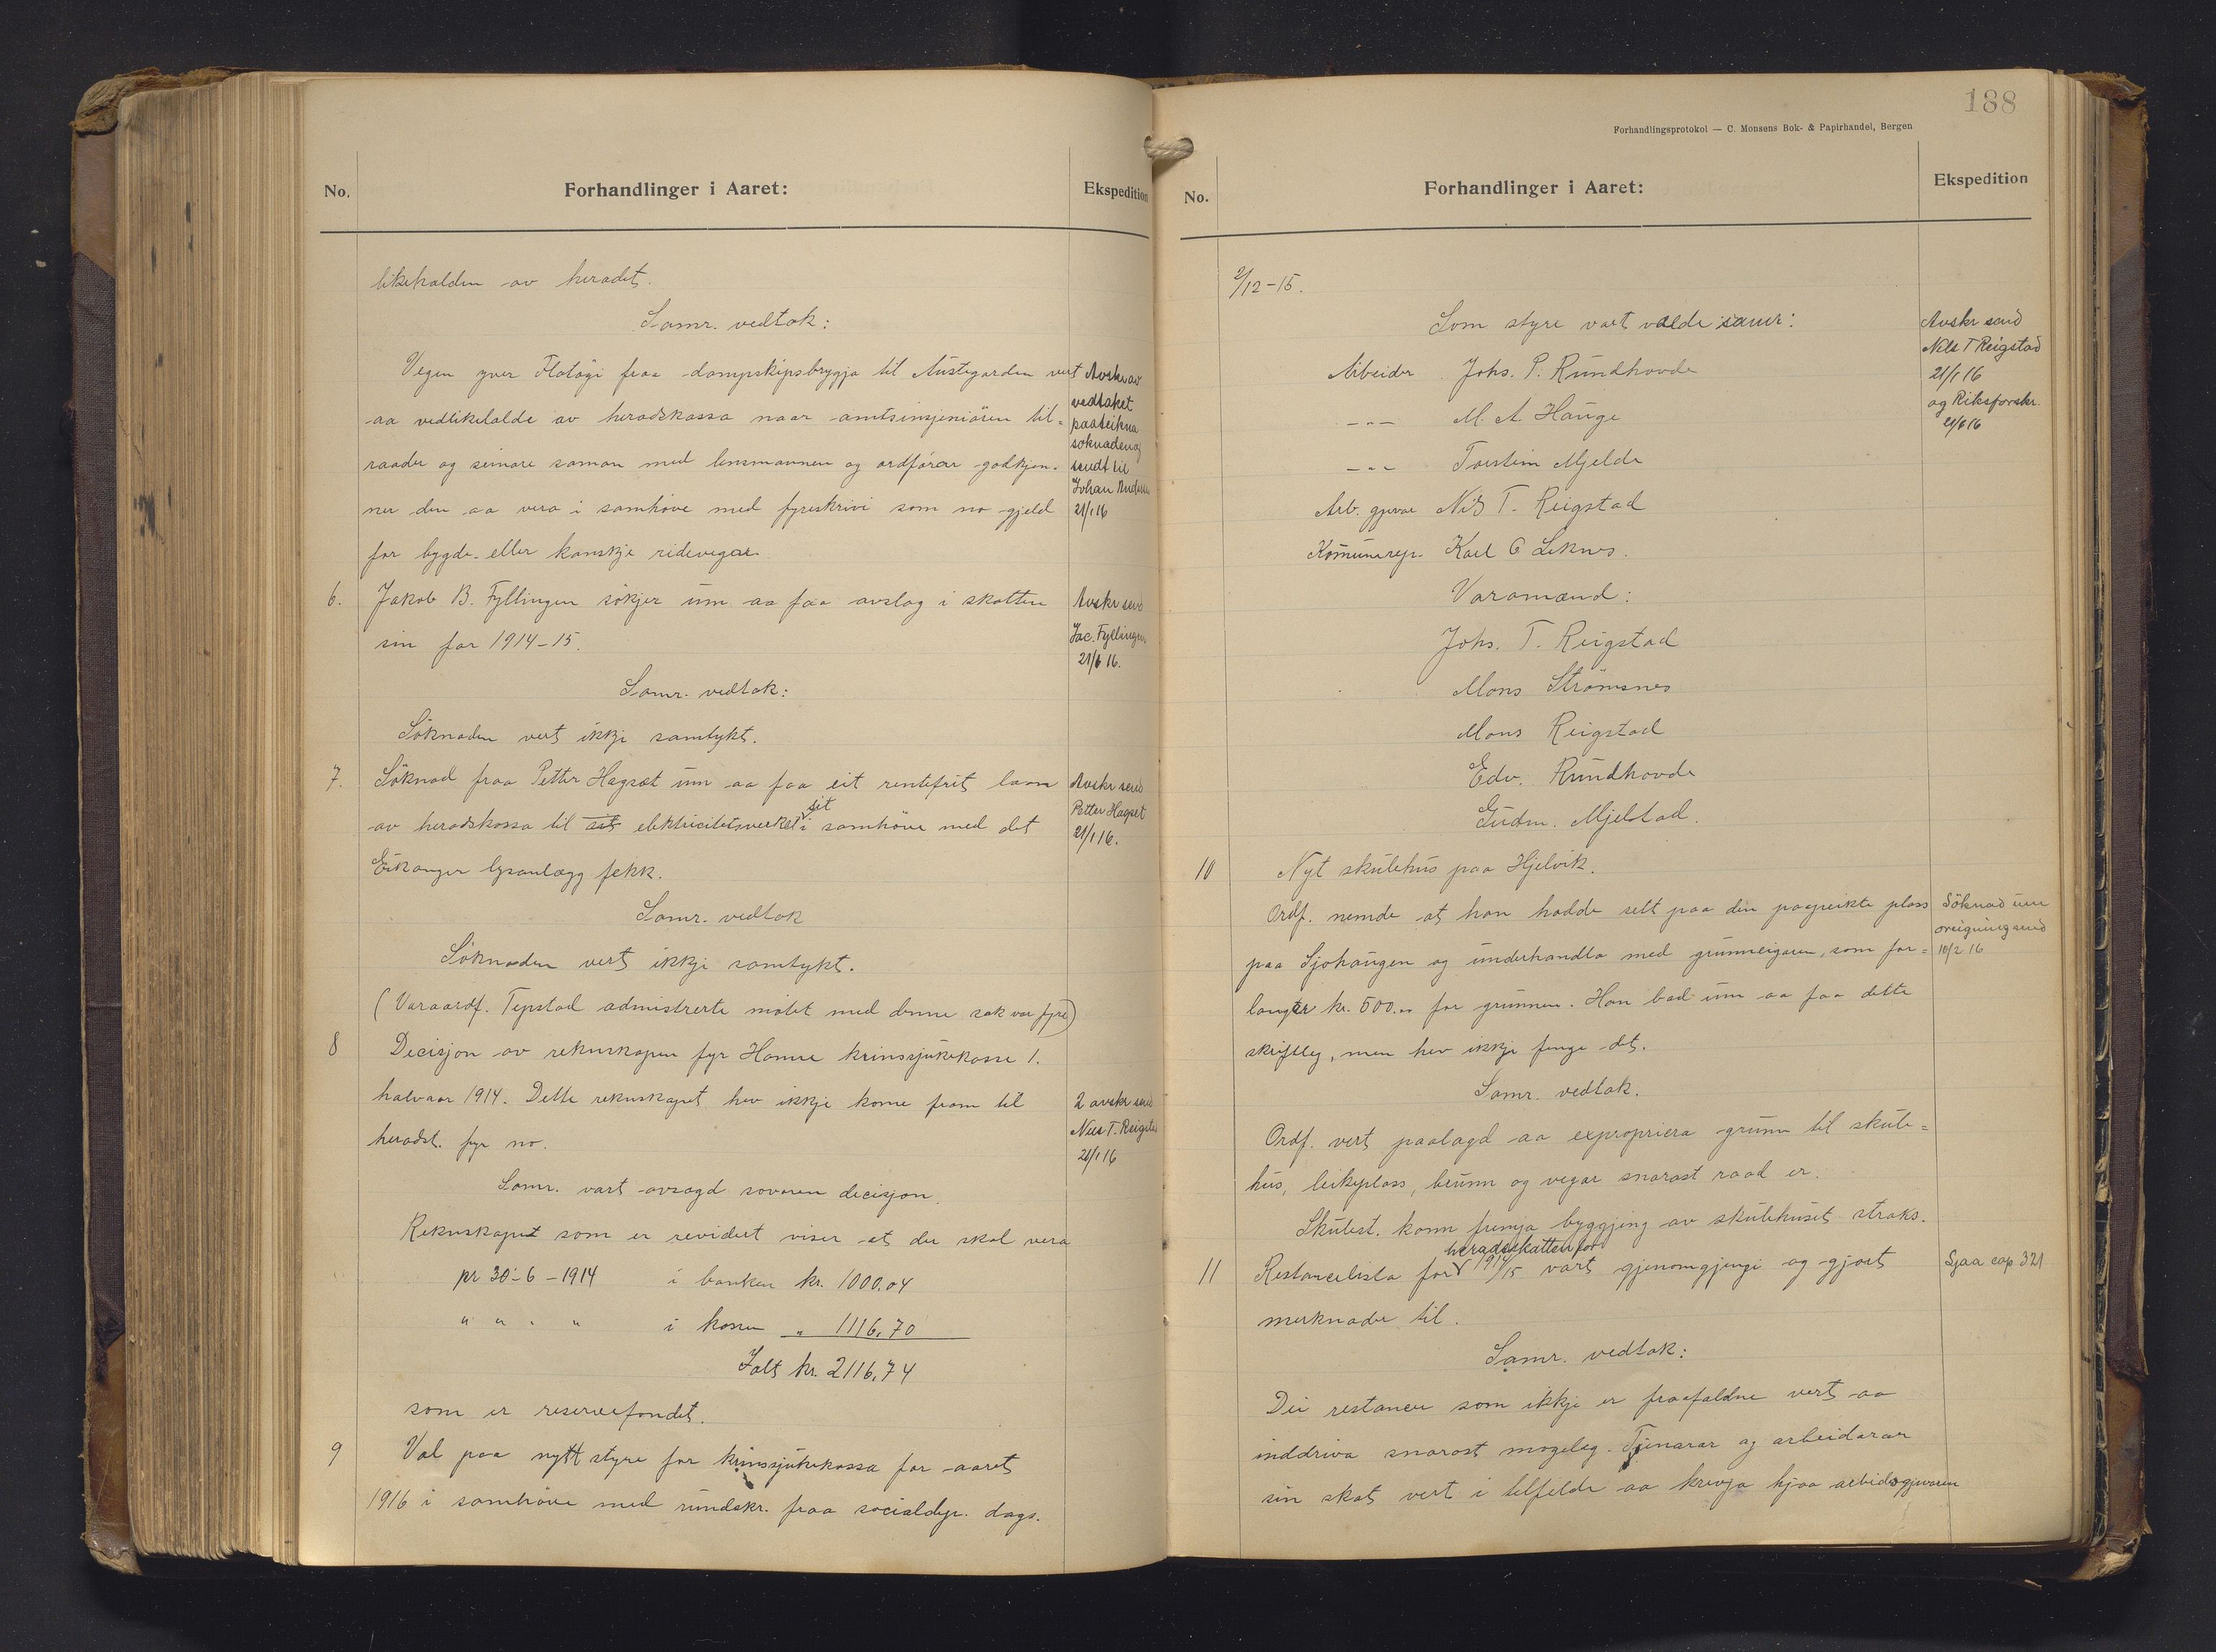 No.
Forhandlinger i Aaret:
Ekspedition
likehalden av heradet.
Samr. vedtak:
Vegen yver Flatöyi fraa dampskipsbryggja til Austegarden vert
aa vedlikehalde av heradskassa naar amtsinsjeniören til=
raader og seinare saman med lensmannen og ordförar godkjen-
ner den aa vera i samhöve med fyreskrivi som no gjeld
for bygde- eller kanskje ridevegar.
Avskr av
vedtaket
paateikna
söknaden og
sendt til
Johan Anders
21/1 16
6. Jakob B. Fyllingen sökjer um aa faa avslag i skatten
sin for 1914-15.
Avskr send
Jac. Fyllingen
21/1 16.
Samr. vedtak:
Söknaden vert ikkje samtykt.
7. Söknad fraa Petter Hagset um aa faa eit rentefrit laan
av heradskassa til sit elektricitetsverket sit i samhöve med det
Eikanger lysanlægg fekk.
Avskr send
Petter Hagset
21/1 16.
Samr. vedtak
Söknaden vert ikkje samtykt.
(Varaordf. Tepstad admistrerte mötet med denne sak var fyre)
8 Decisjon av rekneskapen fyr Hamre krinssjukekasse 1.
halvaar 1914. Dette rekneskapet hev ikkje kome fram til
heradst. fyr no.
2 avskr send
Nils T. Reigstad
21/1 16
Samr. vart avsagd sovoren decisjon.
Rekneskapet som er revidert viser at der skal vera
pr 30-6-1914 i banken kr. 1000.04
" " " " i kassen " 1116,70
Ialt kr. 2116,74
som er reservefondet.
9 Val paa nytt styre for krinssjukekassa for aaret
1916 i samhöve med rundskr. fraa socialdep. dags.
188
Forhandlingsprotokol — C. Monsens Bok- & Papirhandel, Bergen
No.
Forhandlinger i Aaret:
Ekspedition
2/12-15.
Som styre vart valde samr:
Arbeider Johs. P. Rundhovde
-"- M. A. Hauge
-"- Torstein Mjelde
Arb. gjevar Nils T. Reigstad
Komunerep. Karl O Leknes.
Avskr send
Nils T Reigstad
21/1 16
og Riksforskr.
21/1 16
Varamænd:
Johs. T. Reigstad
Mons Strömsnes
Mons Reigstad
Edv. Rundhovde
Gudm. Mjelstad.
10 Nyt skulehus paa Hjelvik.
Ordf. nemde at han hadde sett paa den paapeikte plass
paa Sjohaugen og underhandla med grunneigaren, som for=
langer kr. 500.00 for grunnen. Han bad um aa faa dette
skriftleg, men hev ikkje fenge det.
Söknad um
oreigning send
10/2 16
Samr. vedtak.
Ordf. vert paalagd aa expropriera grunn til skule=
hus, leikeplass, brunn og vegar snarast raad er.
Skulest. kann fremja byggjing av skulehuset straks.
11 Restancelista for heradsskatten for 1914/15 vart gjenomgjengi og gjort
merknader til.
Sjaa cop 321
Samr. vedtak:
Dei restancer som ikkje er fraafaldne vert aa
inddriva snarast mogeleg. Tjenarar og arbeidarar
sin skat vert i tilfelde aa krevja hjaa arbeidsgjevaren